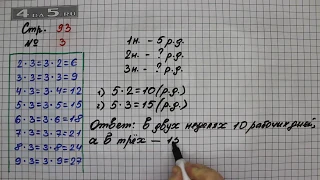 4DA5.RU
Стр. 93
№ 3
2·3=3·2=6
3·3=3·3=9
4·3=3·4=12
5·3=3·5=15
6·3=3·6=18
7·3=3·7=21
8·3=3·8=24
9·3=3·9=27
1н. – 5 р.д.
2н. – ? р.д.
3н. – ? р.д.
1) 5·2=10 (р.д.)
2) 5·3=15 (р.д.)
Ответ: в двух неделях 10 рабочих дней,
а в трёх – 15